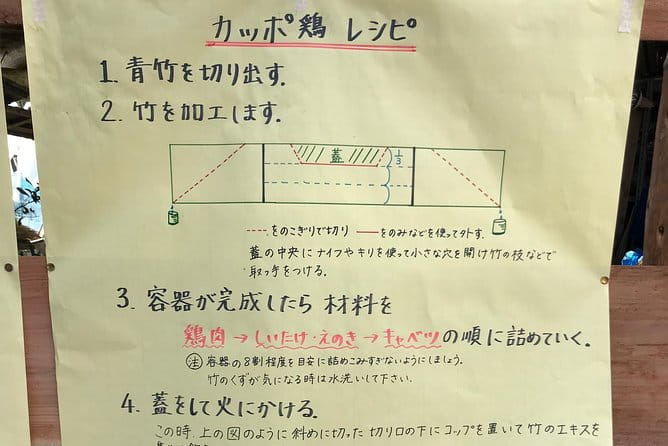 カッポ鶏 レシピ
1. 青竹を切り出す.
2. 竹を加工します.
蓋
1/3
----をのこぎりで切り ——をのみなどを使って外す.
蓋の中央にナイフやキリを使って小さな穴を開け竹の枝などで
取っ手をつける.
3. 容器が完成したら 材料を
鶏肉→しいたけ・えのき→キャベツの順に詰めていく。
注 容器の8割程度を目安に詰めこみすぎないようにしましょう.
竹のくずが気になる時は水洗いして下さい.
4. 蓋をして火にかける.
この時、上の図のように 斜めに切った 切り口の下に コップを置いて竹のエキスを